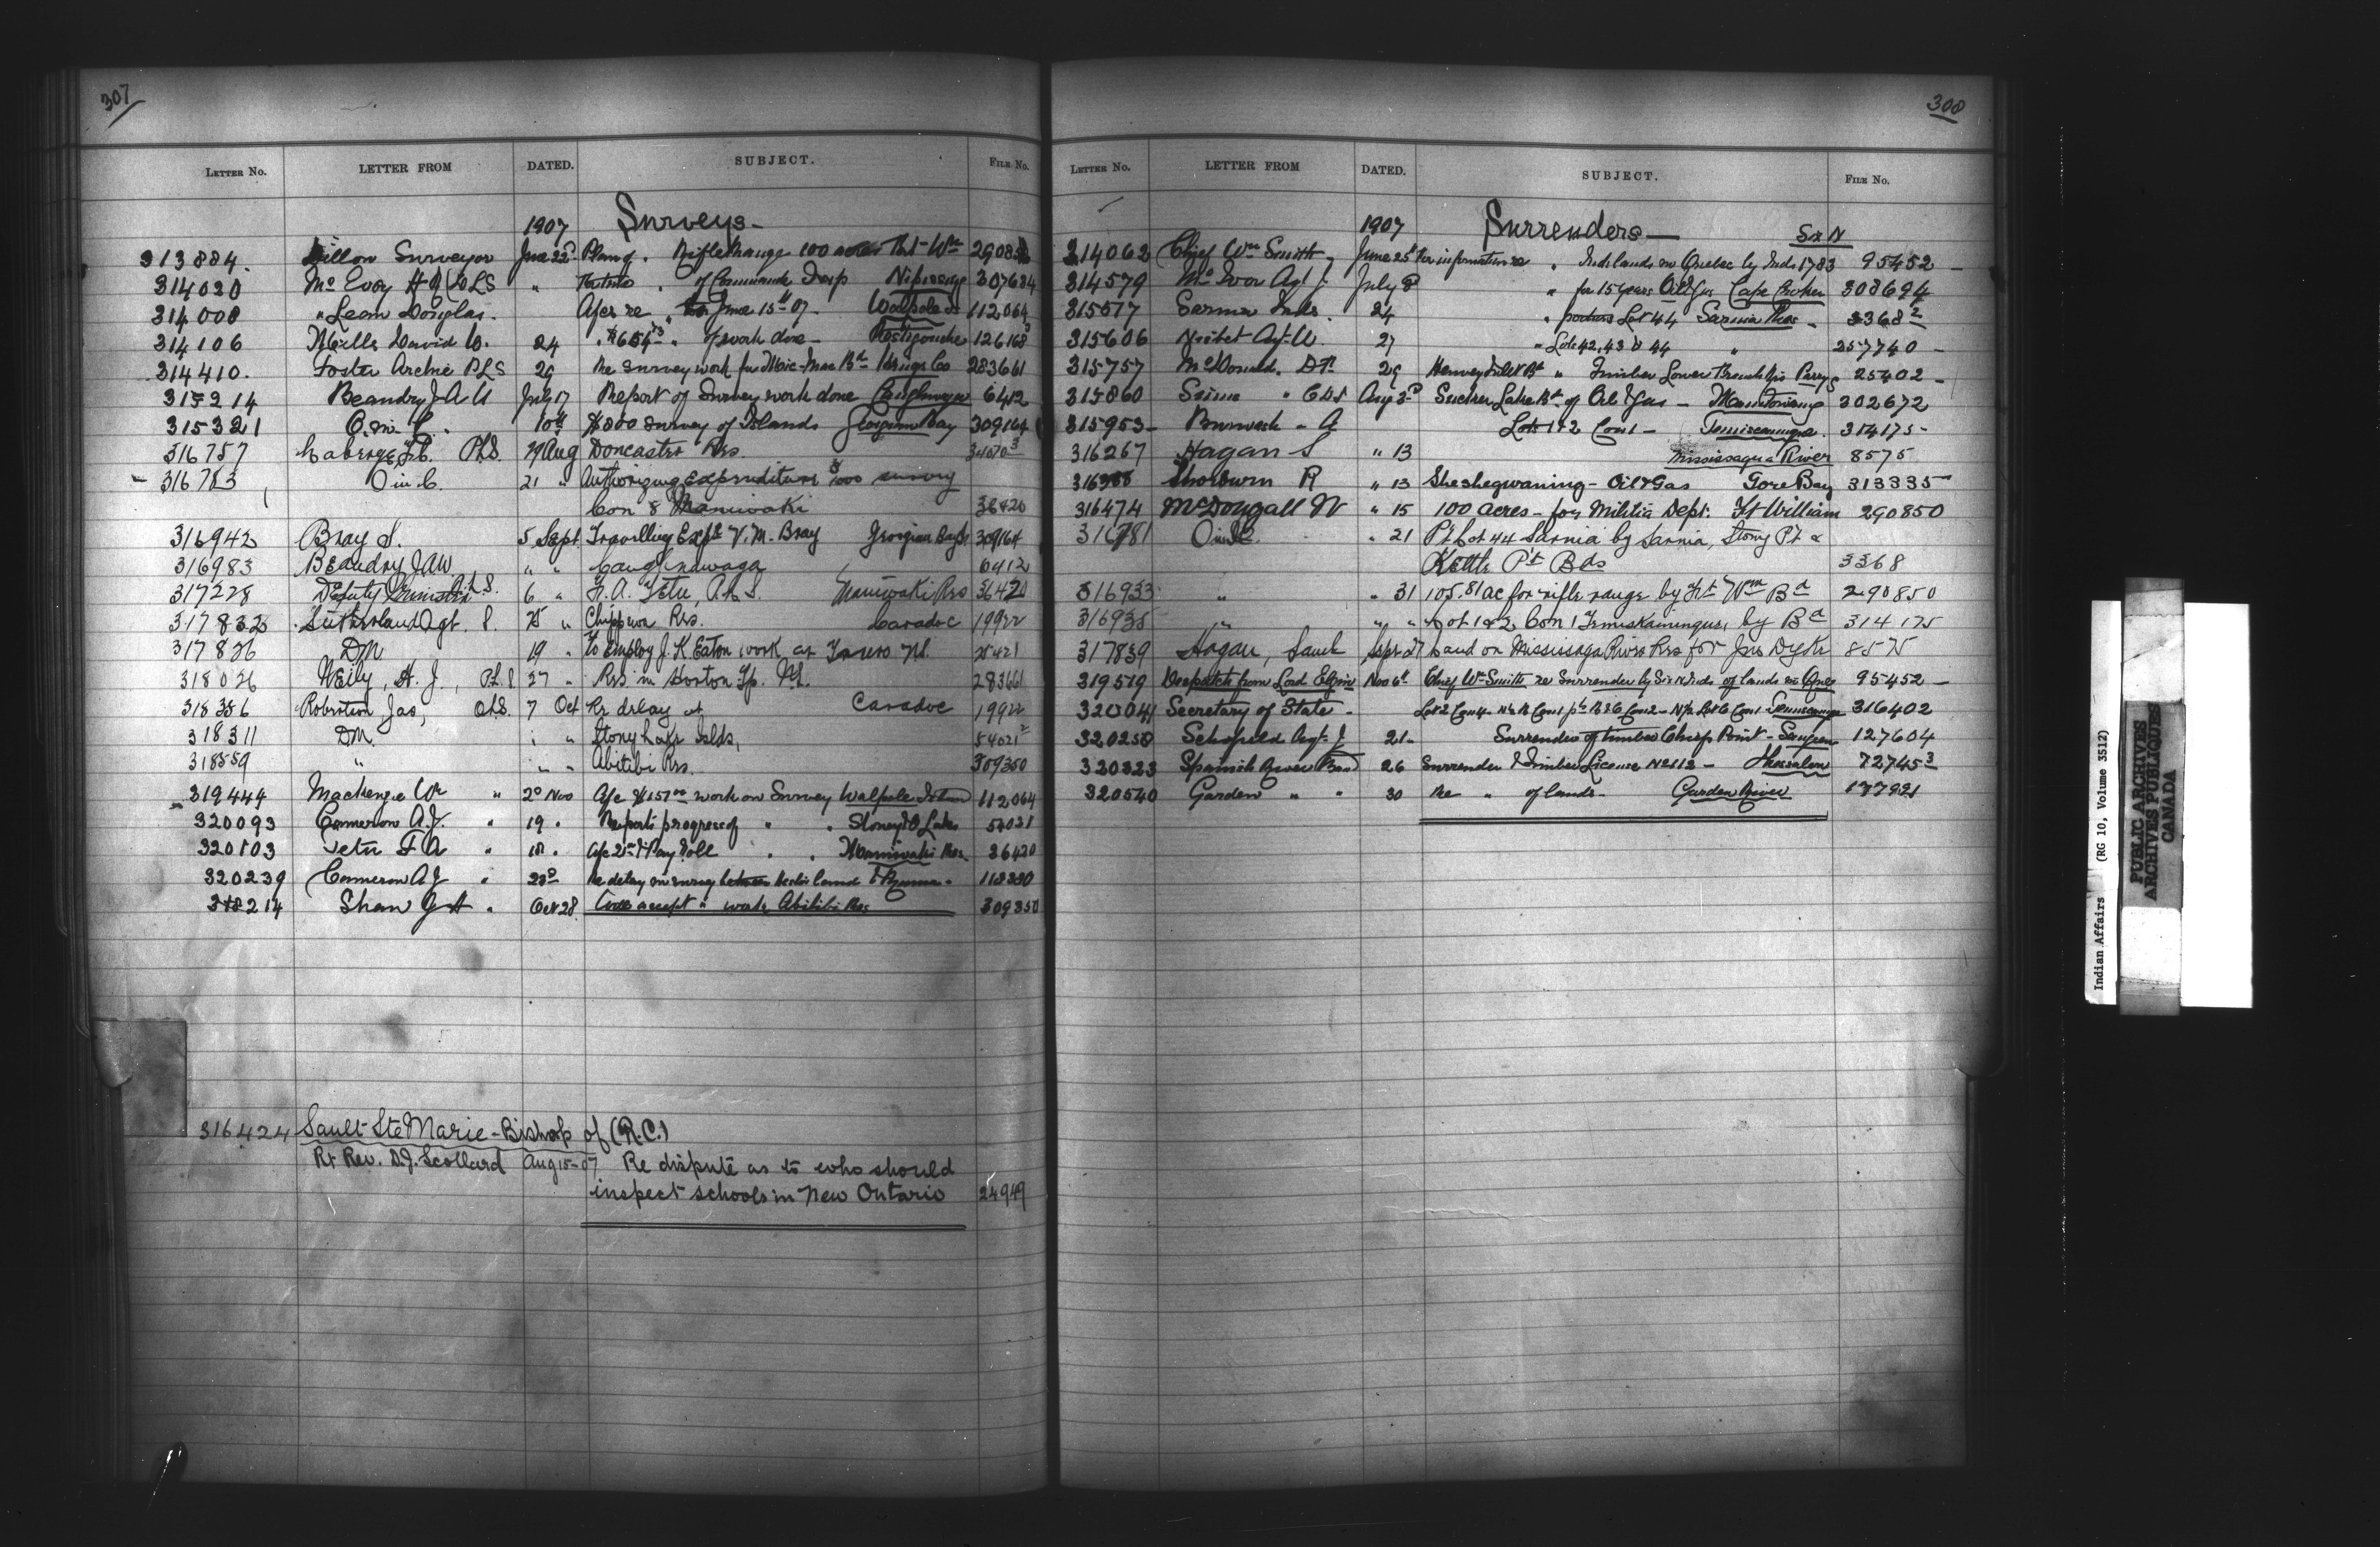 307
LETTER NO. LETTER FROM DATED. SUBJECT. FILE No.
1907 Surveys -
313884. Dillon Surveyor June 22d Plan of . Rifle Range 100 acres Ft. Wm 290850
314020 McEvoy H N DLS " of Commanda Twp Nipissing 307684
314008 " Leam Douglas. A/cs re June 15th 07 - Walpole Is 112064
314106 Mills David W. 24 of work done - Restigouche 126168
314410. Foster Archie PLS 29 Re survey work for Mic-Mac Bd Kings Co 283661
315214 Beaudry J A U July 17 Report of Survey work done Caughnawaga 6412
315321 O. in C. 10th $800 survey of Islands Georgian Bay 309164
316757 Laberge PLS. 29 Aug Doncaster Rés.
316783 O in C. 21 " Authorizing Expenditure $1000 survey
Con 8 Maniwaki 36420
316942 Bray S. 5 Sept. Travelling Exps V. M. Bray Georgian Bay 309164
316983 Beaudry JAU " " Caughnawaga 6412
317228 Deputy Minister 6 " F. A. Tetu, P.L.S. Maniwaki Res 36420
317832 Sutherland Agt. S. 25 " Chippewa Res. Caradoc 19922
317826 DM 19 " To employ J. K. Eaton work at Truro N.S. 25421
318026 Weily, H. J., P.L.S 27 " Res. in Horton Tp. N.S. 283661
318386 Robertson Jas, O.L.S. 7 Oct Re delay at Caradoc 19922
318311 DM. " " Stony Lake Islds, 54021²
318559 " " " Abitibi Res. 309350
319444 Mackenzie Wr " 2d Nov A/c $157 work on Survey Walpole Island 112064
320093 Cameron A.J. " 19 " Reports progress of " " Stoney Lake 54021
320103 Tetu F A " 18 " A/c Pay Roll " " Maniwaki Res. 36420
320239 Cameron A J " 23d Re delay on survey between
318214 Shaw G A " Oct 28 accept " work Abitibi Res 309350
316424 Sault Ste Marie - Bishop of (R.C.)
Rt Rev. D.J. Scollard Aug 15-07 Re dispute as to who should
inspect schools in New Ontario 24949
308
LETTER NO. LETTER FROM DATED. SUBJECT. FILE No.
1907 Surrenders - Six N
314062 Chief Wm Smith - June 25th For information re " Inds lands in Quebec by Inds 1783 95452 -
314579 McIver Agt J July 8 " for 15 years Oil & Gas Cape Croker 308694
315517 Sarnia Inds. 24 " portions Lot 44 Sarnia Res - 3368²
315606 Nisbet Agt W. 27 " Lots 42, 43 & 44 " 257740 -
315757 McDonald, D.F. 29 Henvey Inlet Bd " Timber Lower French Riv Parry S 25402 -
315860 Sims " C D S Aug 3d Sucker Lake Bd of Oil & Gas - Manitowaning 302672
315953 - Burwash - A Lots 1 & 2 Con 1 - Temiscamingue. 314175 -
316267 Hagan S " 13 Mississagua River 8575
Thorburn R " 13 Sheshegwaning - Oil & Gas Gore Bay 313335
316474 McDougall N " 15 100 acres - for Militia Dept. Ft William 290850
O in C. " 21 Pt. Lot 44 Sarnia by Sarnia, Stony Pt. &
Kettle Pt Bds 3368
316933 " " 31 105.81 ac for rifle range by Ft Wm Bd 290850
316935 " " " Lot 1 & 2 Con 1 Temiskamingue, by Bd 314175
317839 Hagan, Saml Sept 27 Land on Mississaga River Res for Jno Dyck 8575
319579 Despatch from Lord Elgin Nov 6th Chief Wm Smith re Surrender by Six N Inds of lands in Que 95452 -
320041 Secretary of State - 316402
320258 Schofield Agt. J 21 - Surrender of timber Chiefs Point - Saugeen 127604
320323 Spanish River Band 26 Surrender & Timber License No 112 - Thessalon 72745³
320540 Garden " " 30 Re " of lands - Garden River 177921
Indian Affairs (RG 10, Volume 3512)
PUBLIC ARCHIVES
ARCHIVES PUBLIQUES
CANADA